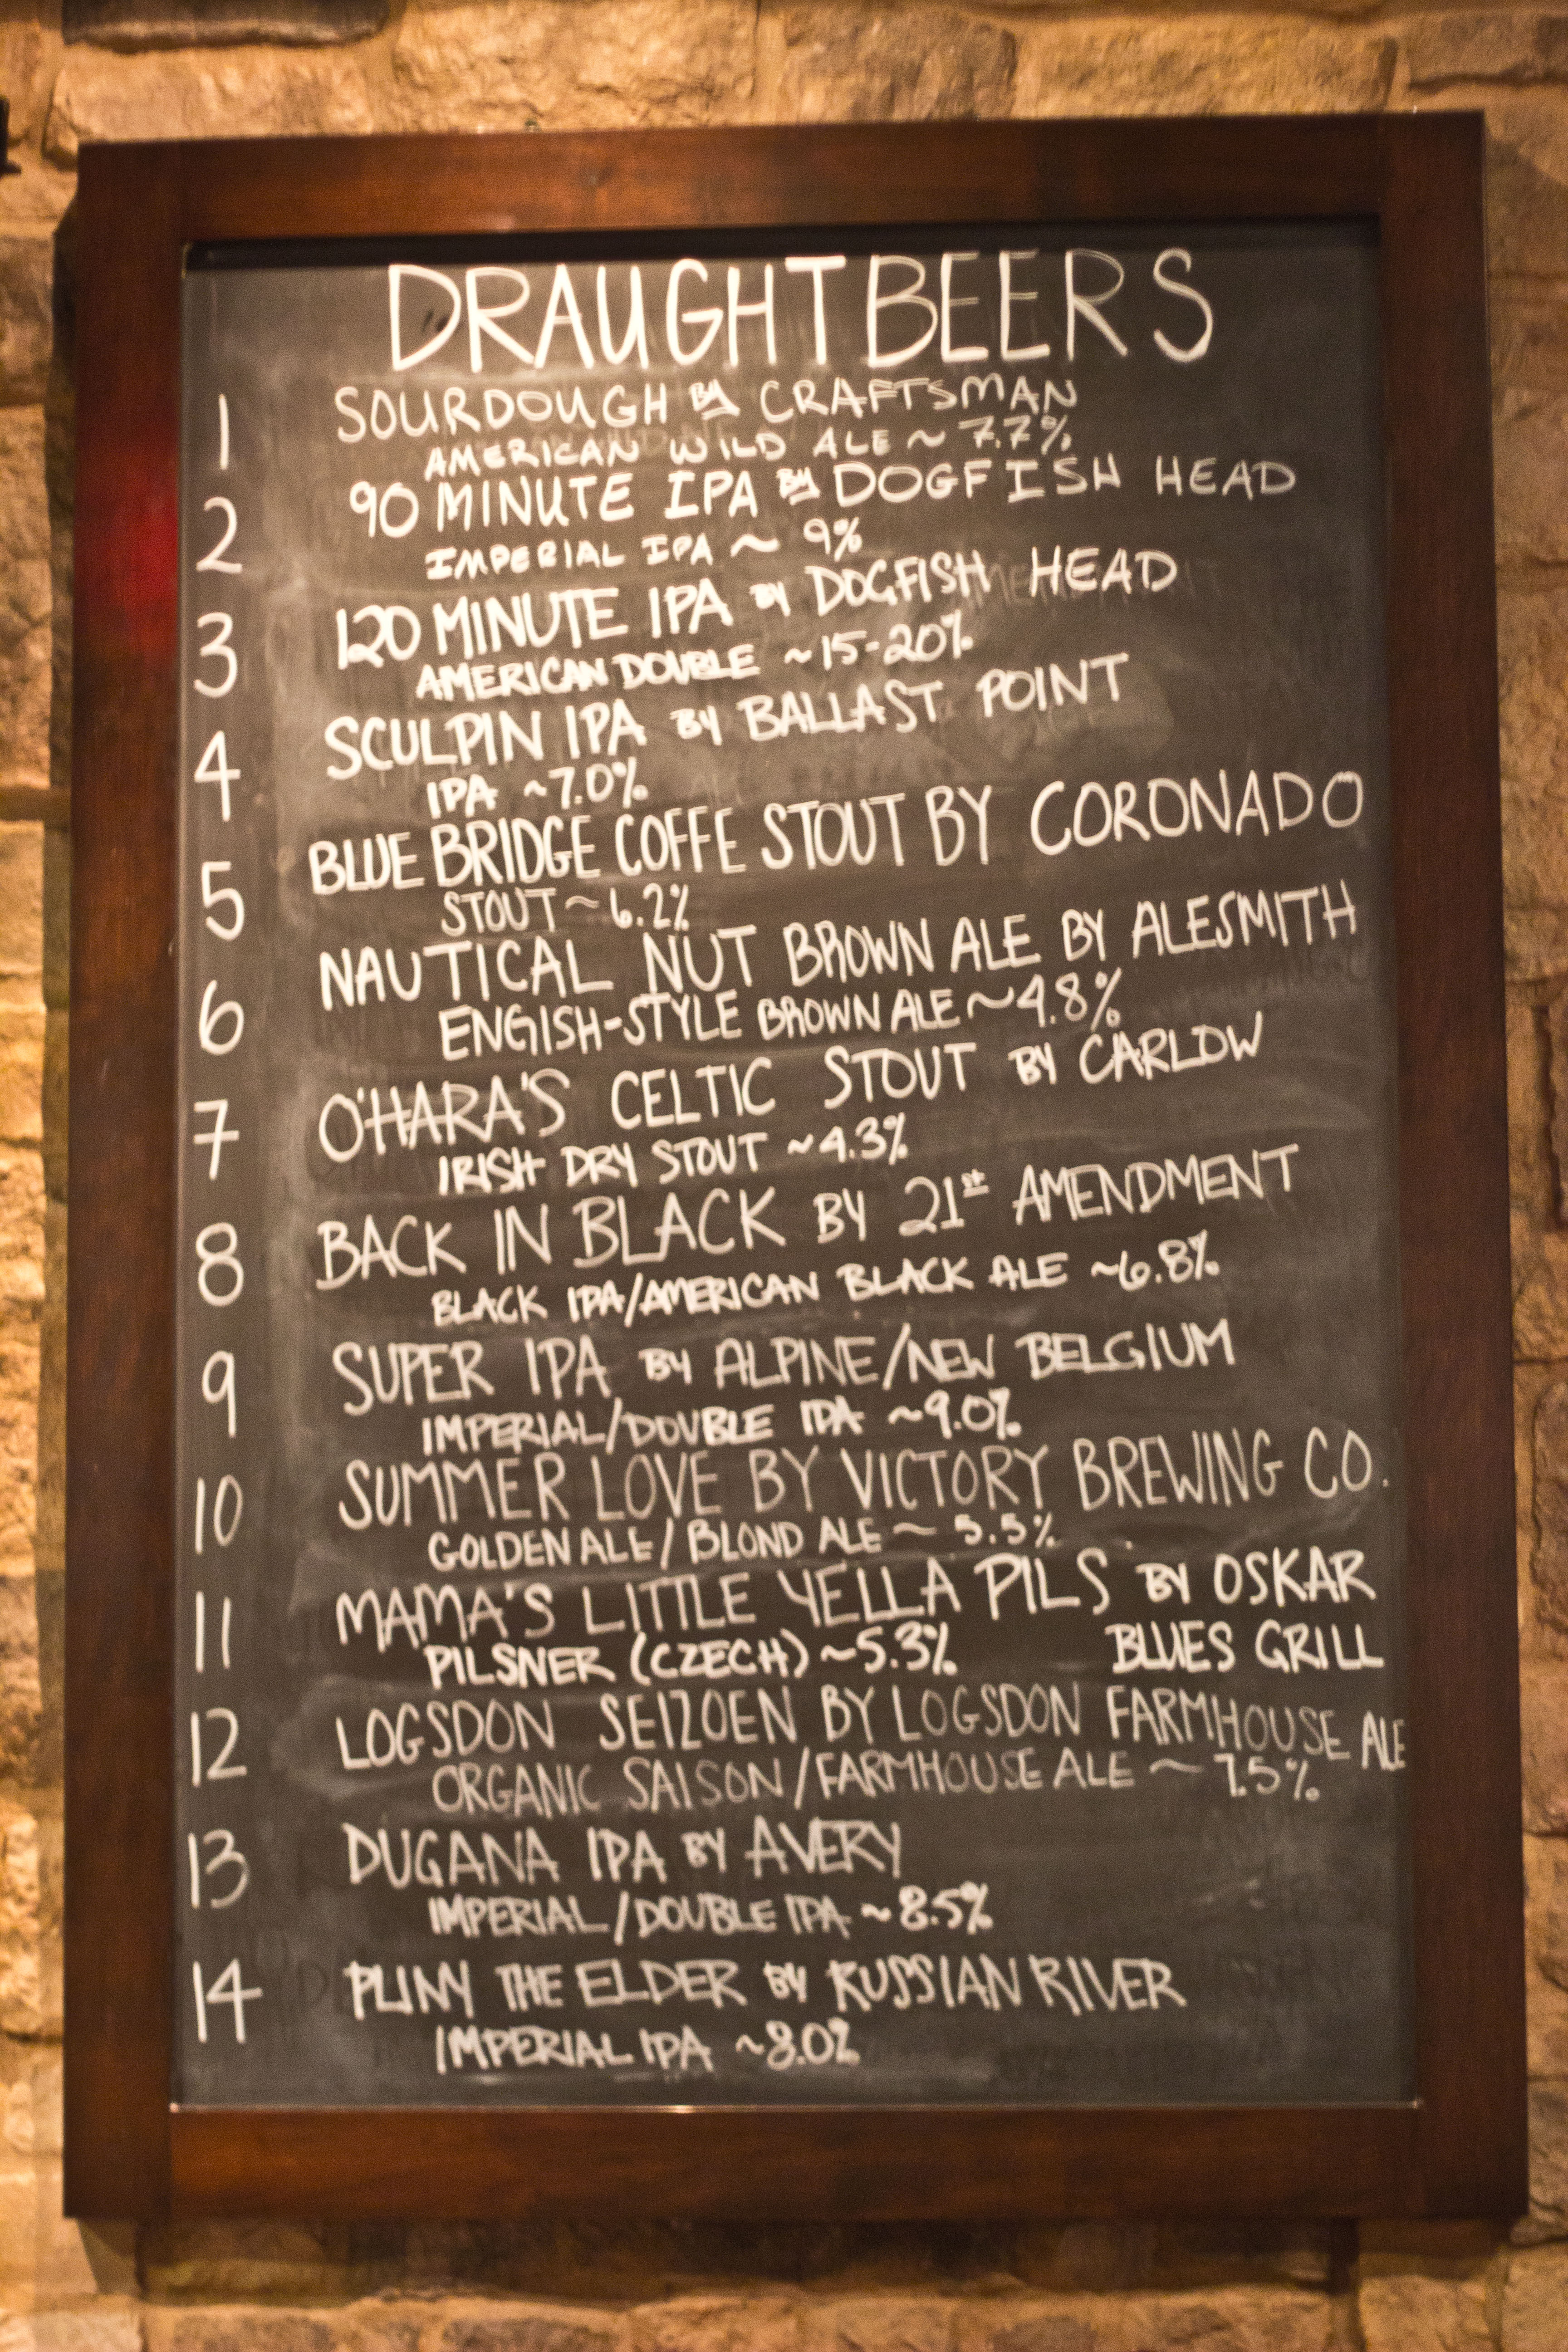 DRAUGHT BEERS
1 SOURDOUGH BY CRAFTSMAN
AMERICAN WILD ALE ~ 7.7%
2 90 MINUTE IPA BY DOGFISH HEAD
IMPERIAL IPA ~ 9%
3 120 MINUTE IPA BY DOGFISH HEAD
AMERICAN DOUBLE ~15-20%
4 SCULPIN IPA BY BALLAST POINT
IPA ~7.0%
5 BLUE BRIDGE COFFE STOUT BY CORONADO
STOUT ~ 6.2%
6 NAUTICAL NUT BROWN ALE BY ALESMITH
ENGISH-STYLE BROWN ALE ~4.8%
7 O'HARA'S CELTIC STOUT BY CARLOW
IRISH DRY STOUT ~4.3%
8 BACK IN BLACK BY 21st AMENDMENT
BLACK IPA/AMERICAN BLACK ALE ~6.8%
9 SUPER IPA BY ALPINE/NEW BELGIUM
IMPERIAL/DOUBLE IPA ~9.0%
10 SUMMER LOVE BY VICTORY BREWING CO.
GOLDEN ALE/BLOND ALE ~ 5.5%
11 MAMA'S LITTLE YELLA PILS BY OSKAR
PILSNER (CZECH) ~5.3% BLUES GRILL
12 LOGSDON SEIZOEN BY LOGSDON FARMHOUSE ALE
ORGANIC SAISON/FARMHOUSE ALE ~ 7.5%
13 DUGANA IPA BY AVERY
IMPERIAL/DOUBLE IPA ~8.5%
14 PLINY THE ELDER BY RUSSIAN RIVER
IMPERIAL IPA ~8.0%